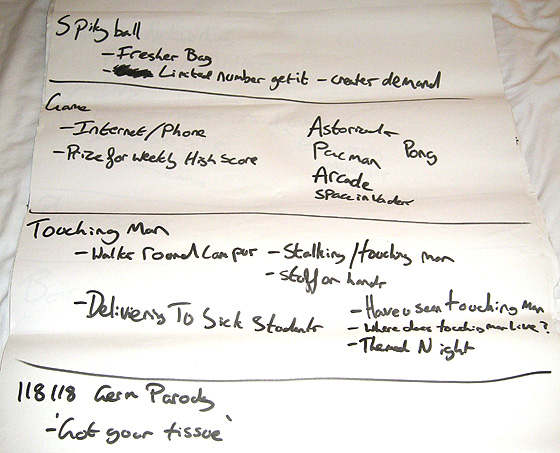 Spiky ball
- Fresher Bag
- Limited number get it - creates demand
Game
- Internet/Phone
- Prize for Weekly High Score
Asteroids
Pacman Pong
Arcade
Space invaders
Touching Man
- Walks round campus
- Stalking/touching man
- stuff on hands
- Deliveries To Sick Students
- Have u seen touching man
- Where does touching man live?
- Themed Night
118118 Germ Parody
- 'Got your tissue'